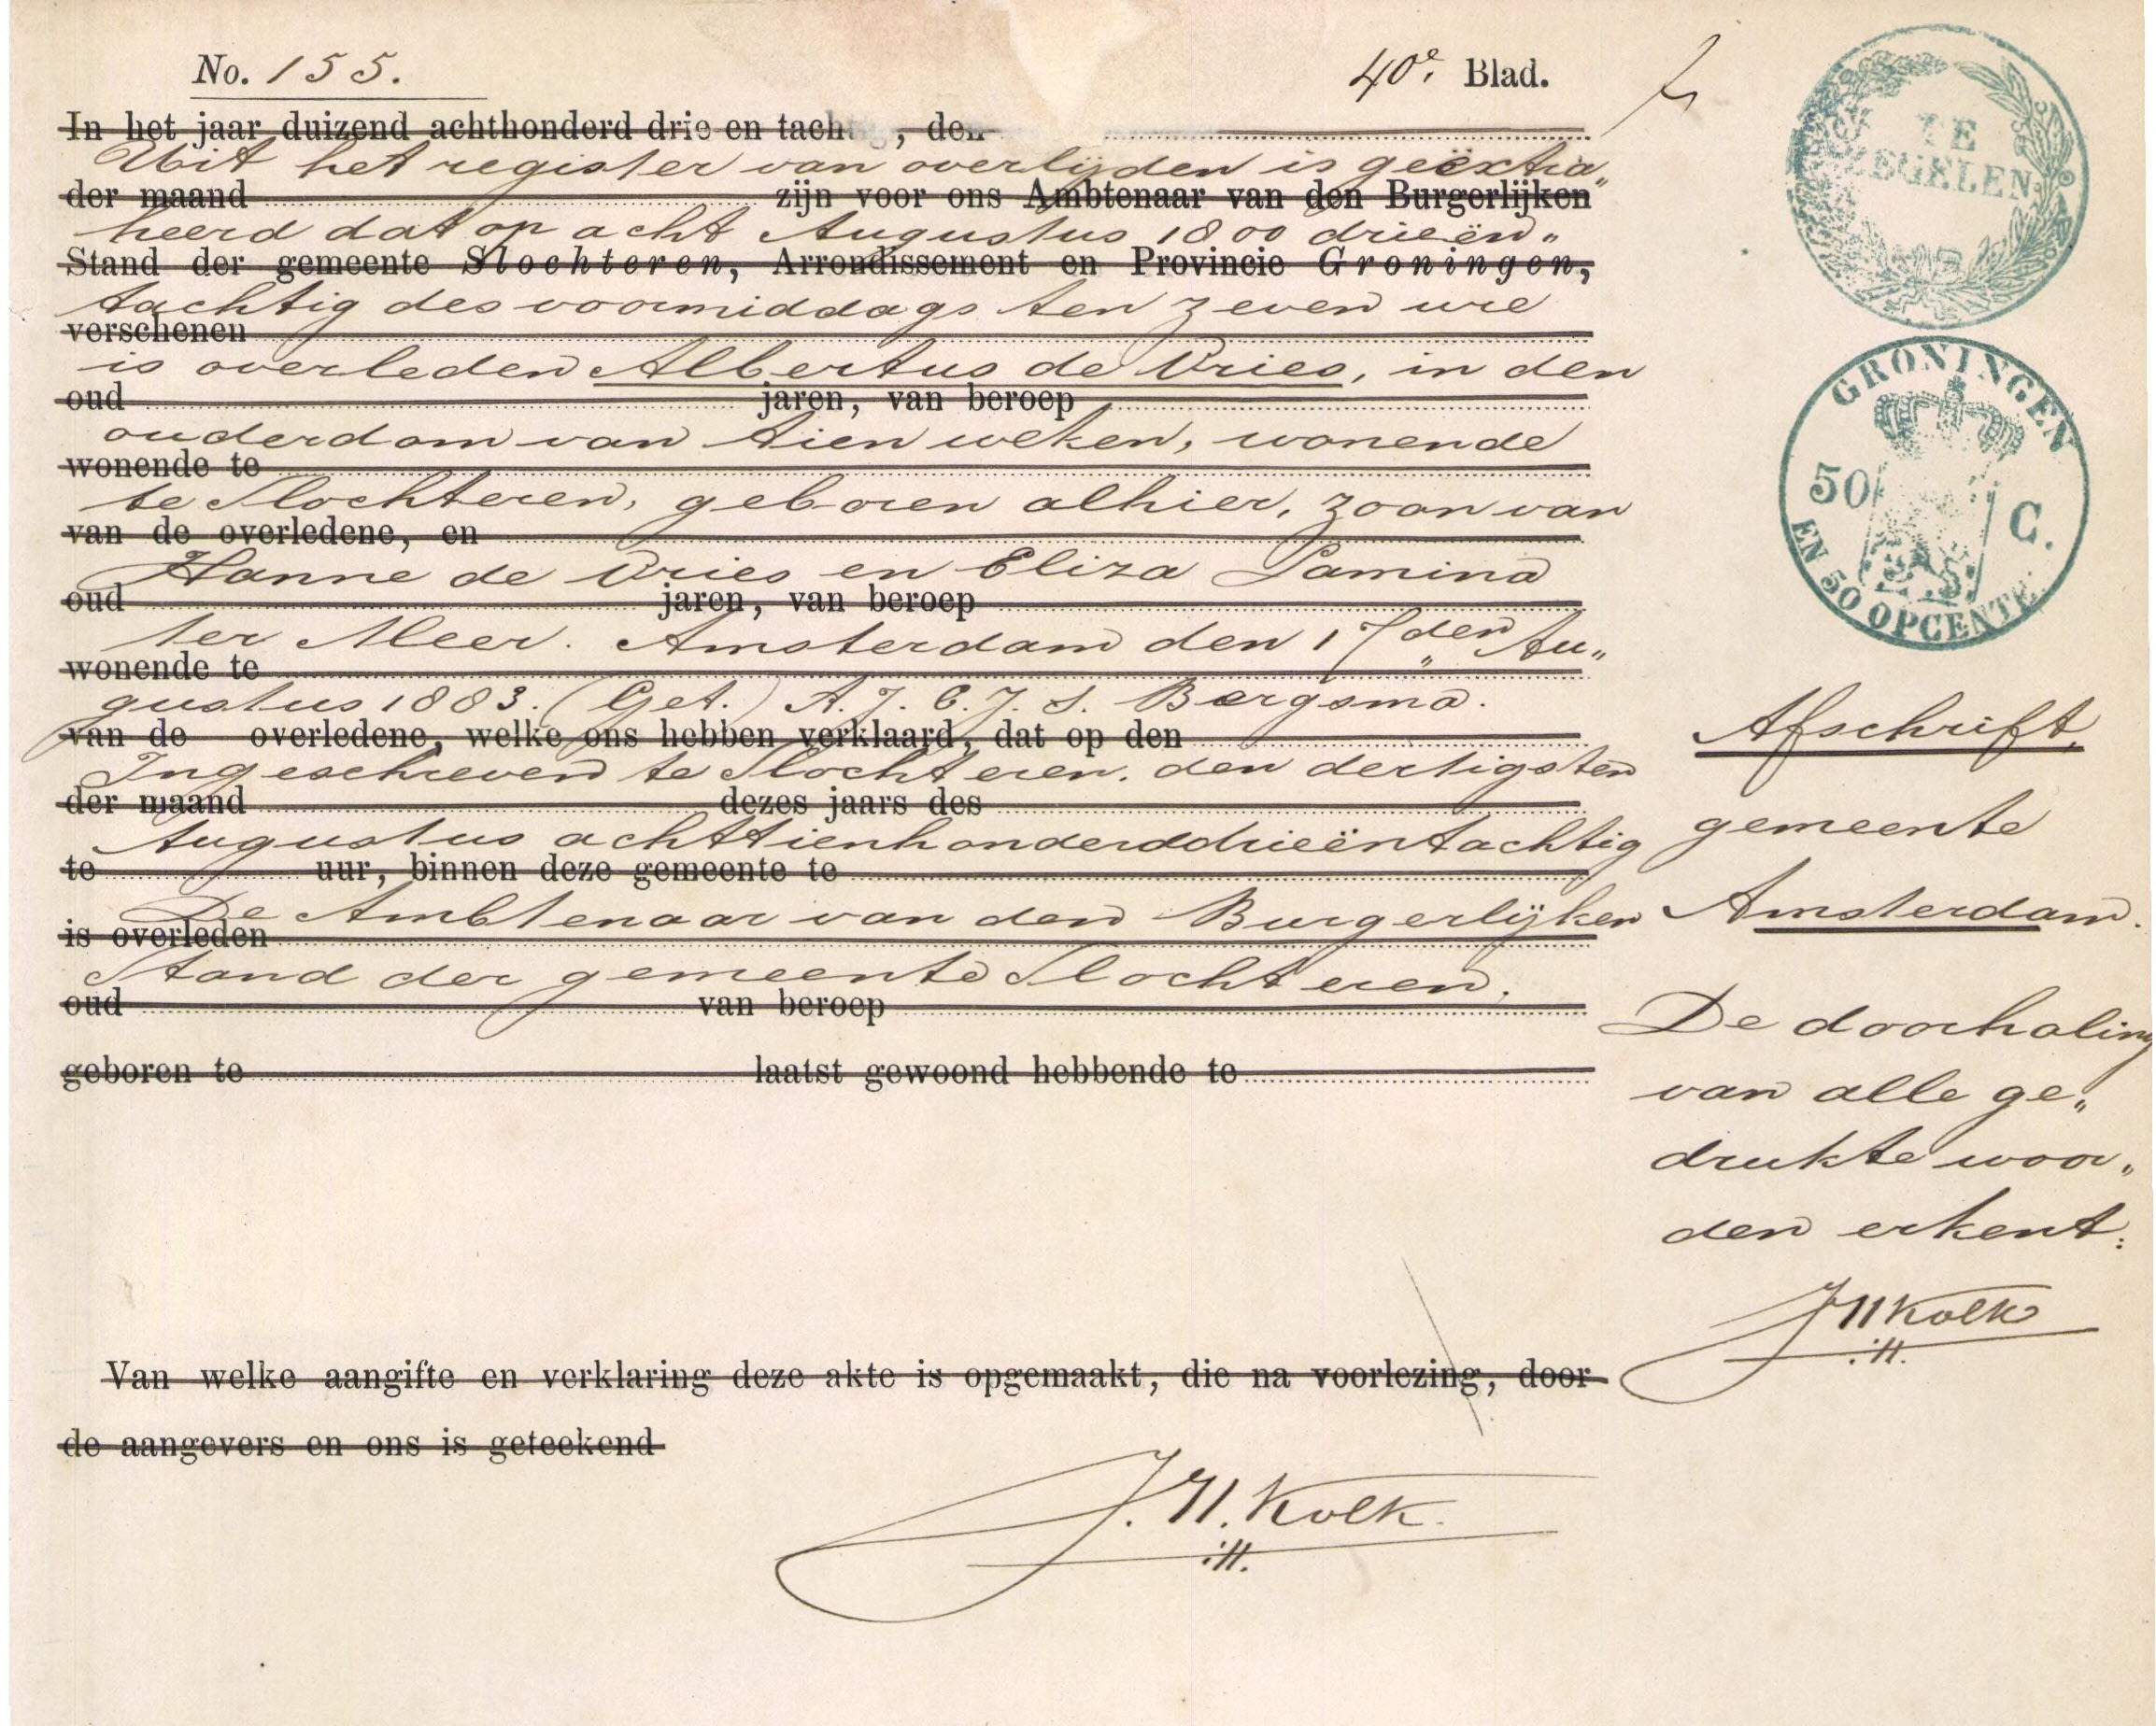 No. 155.
40e. Blad.
In het jaar duizend achthonderd drie en tach , den
Uit het register van overlijden is geëxtra„
der maand zijn voor ons Ambtenaar van den Burgerlijken
heerd dat op acht Augustus 1800 drieën„
Stand der gemeente Slochteren, Arrondissement en Provincie Groningen,
tachtig des voormiddags ten zeven ure
verschenen
is overleden Albertus de Vries, in den
oud jaren, van beroep
ouderdom van tien weken, wonende
wonende te
te Slochteren, geboren alhier, zoon van
van de overledene, en
Hanne de Vries en Eliza Lamina
oud jaren, van beroep
ter Meer. Amsterdam den 17den Au„
wonende te
gustus 1883. (Get.) A. J. E. J. S. Bergsma.
van de overledene, welke ons hebben verklaard, dat op den
Ingeschreven te Slochteren. den dertigsten
der maand dezes jaars des
Augustus achttienhonderddrieëntachtig
te uur, binnen deze gemeente te
De Ambtenaar van den Burgerlijken
is overleden
Stand der gemeente Slochteren.
oud van beroep
geboren te laatst gewoond hebbende te
Van welke aangifte en verklaring deze akte is opgemaakt, die na voorlezing, door
de aangevers en ons is geteekend
J. H. Kolk.
TE
ZEGELEN
GRONINGEN
50 C.
EN 50 OPCENTEN
Afschrift,
gemeente
Amsterdam.
De doorhaling
van alle ge„
drukte woor„
den erkent:
J H Kolk